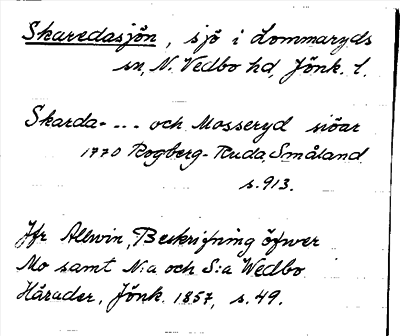 Skaredasjön, sjö i Lommaryds
sn, N. Vedbo hd, Jönk. l.
Skarda- ... och Mosseryd siöar
1770 Rogberg-Ruda, Småland
s. 913.
Jfr Allvin, Beskrifning öfwer
Mo samt N:a och S:a Wedbo
Härader, Jönk. 1857, s. 49.